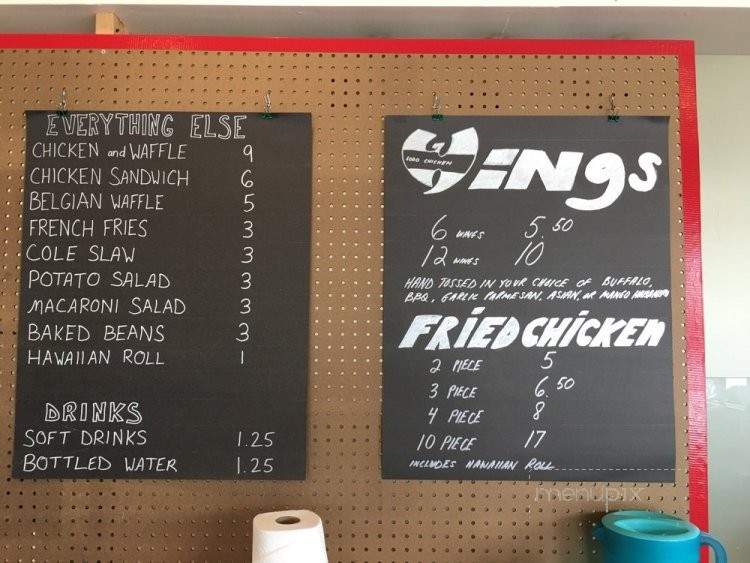 EVERYTHING ELSE
CHICKEN and WAFFLE 9
CHICKEN SANDWICH 6
BELGIAN WAFFLE 5
FRENCH FRIES 3
COLE SLAW 3
POTATO SALAD 3
MACARONI SALAD 3
BAKED BEANS 3
HAWAIIAN ROLL 1
DRINKS
SOFT DRINKS 1.25
BOTTLED WATER 1.25
CHICKEN
WiNgs
6 WINGS 5.50
12 WINGS 10
HAND TOSSED IN YOUR CHOICE OF BUFFALO,
BBQ, GARLIC PARMESAN, ASIAN, OR MANGO HABANERO
FRiED CHiCKEN
2 PIECE 5
3 PIECE 6.50
4 PIECE 8
10 PIECE 17
INCLUDES HAWAIIAN ROLL
menupix